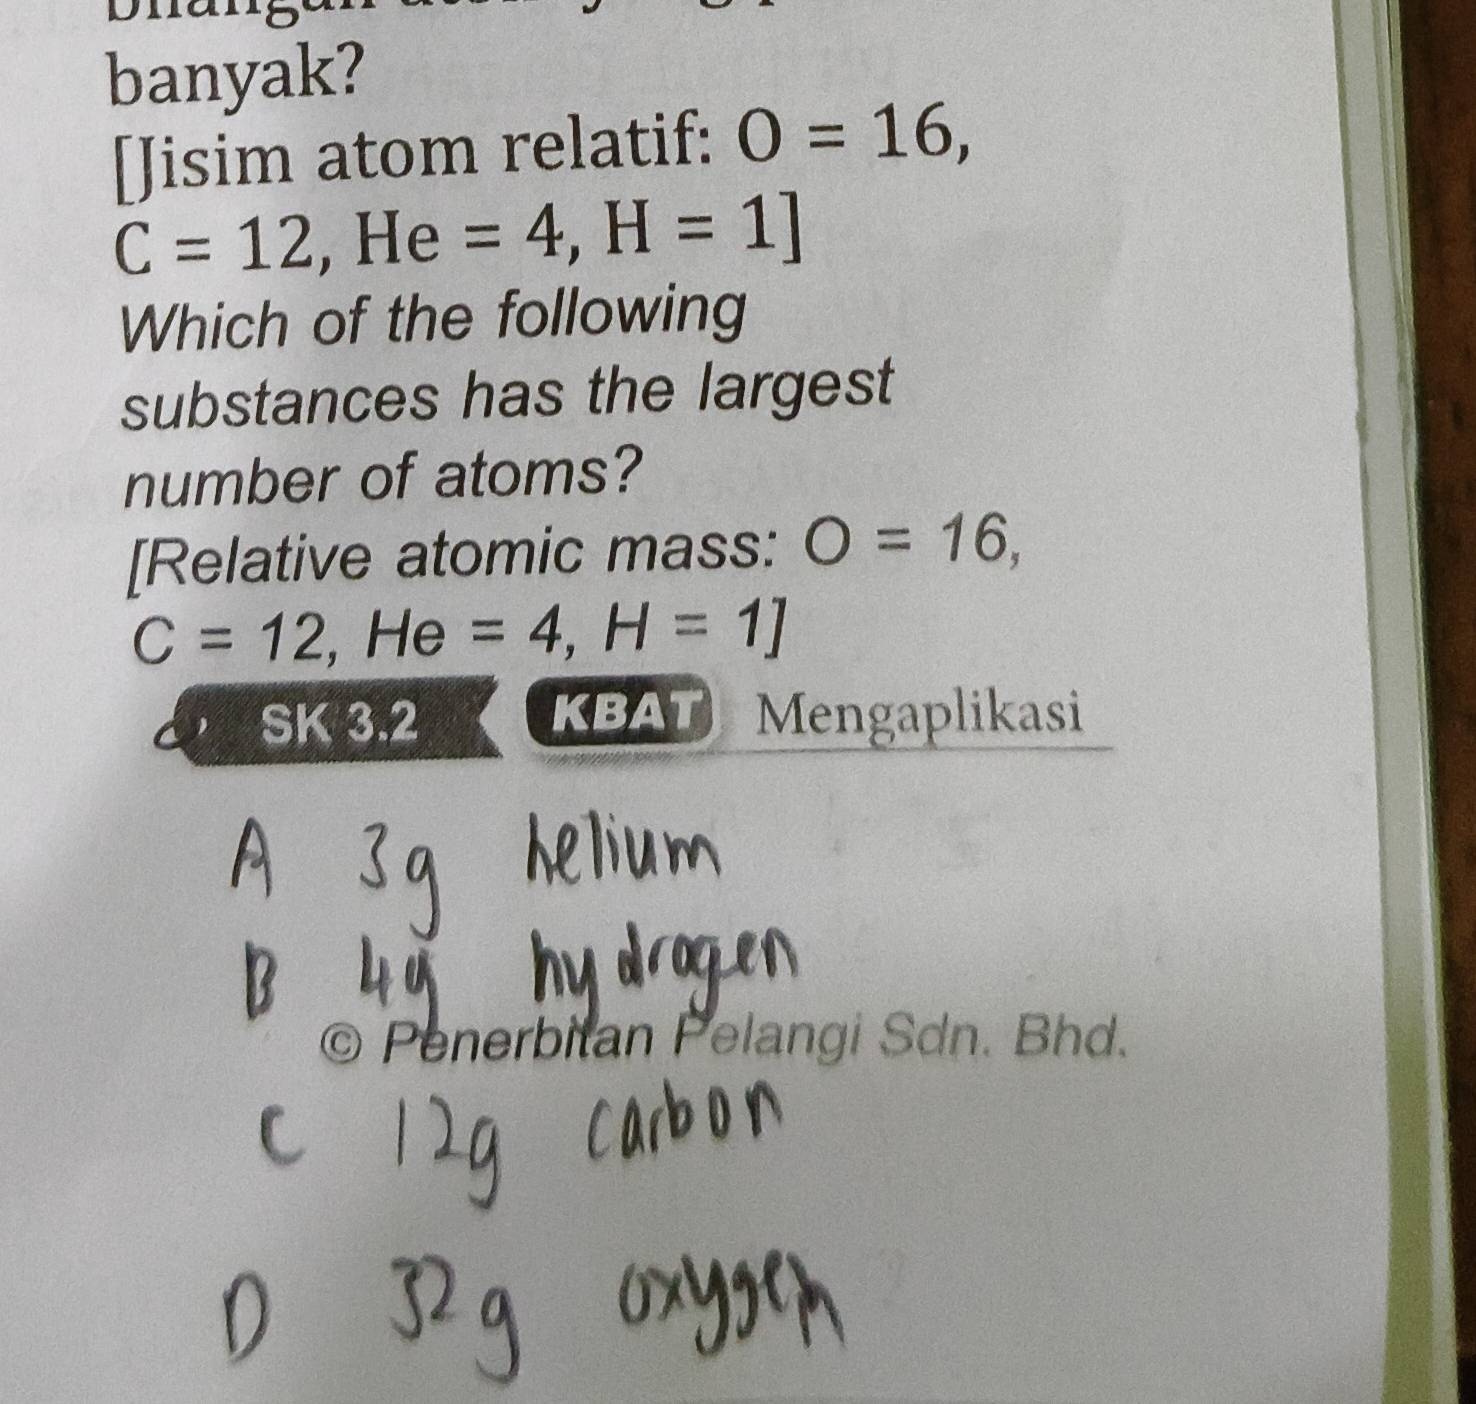 banyak?
[Jisim atom relatif: O = 16,
C = 12, He = 4, H = 1]
Which of the following
substances has the largest
number of atoms?
[Relative atomic mass: O = 16,
C = 12, He = 4, H = 1]
SK 3.2 KBAT Mengaplikasi
A 3g helium
B 4g hydrogen
© Penerbitan Pelangi Sdn. Bhd.
C 12g carbon
D 32g oxygen